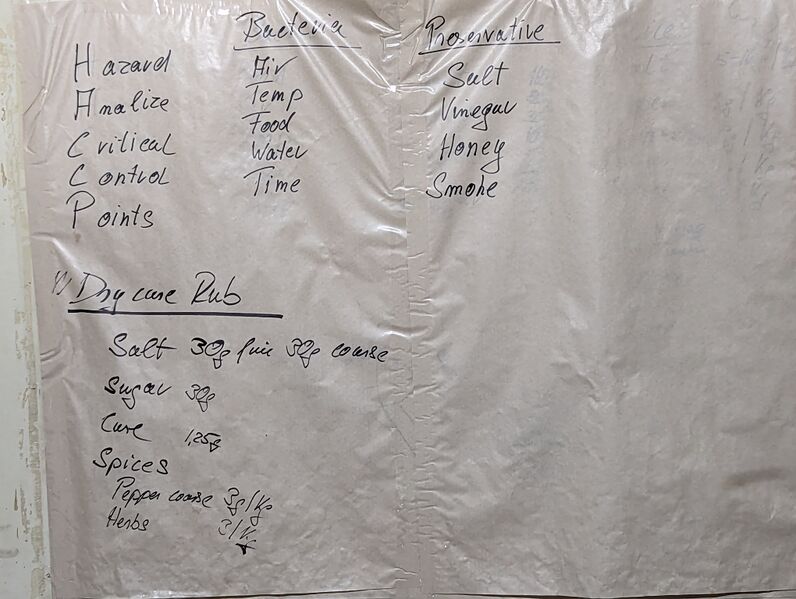 Hazard
Analize
Critical
Control
Points
Bacteria
Air
Temp
Food
Water
Time
Preservative
Salt
Vinegar
Honey
Smoke
Dry cure Rub
Salt 30g fine 30g coarse
Sugar 30g
Cure 1,25g
Spices
Pepper coarse 3g/Kg
Herbs 3/K